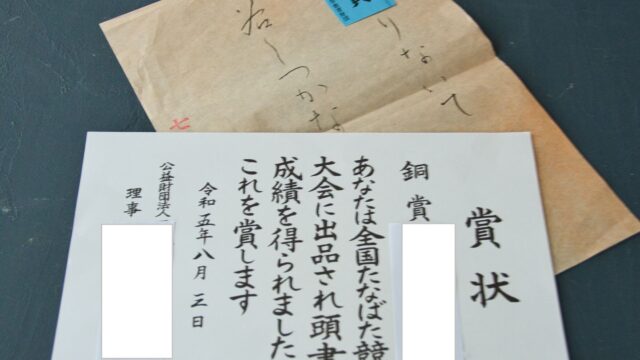 りないて
しつかな
七
賞状
銅賞
あなたは全国たなばた競
大会に出品され頭書
成績を得られました
これを賞します
令和五年八月三日
公益財団法人
理事